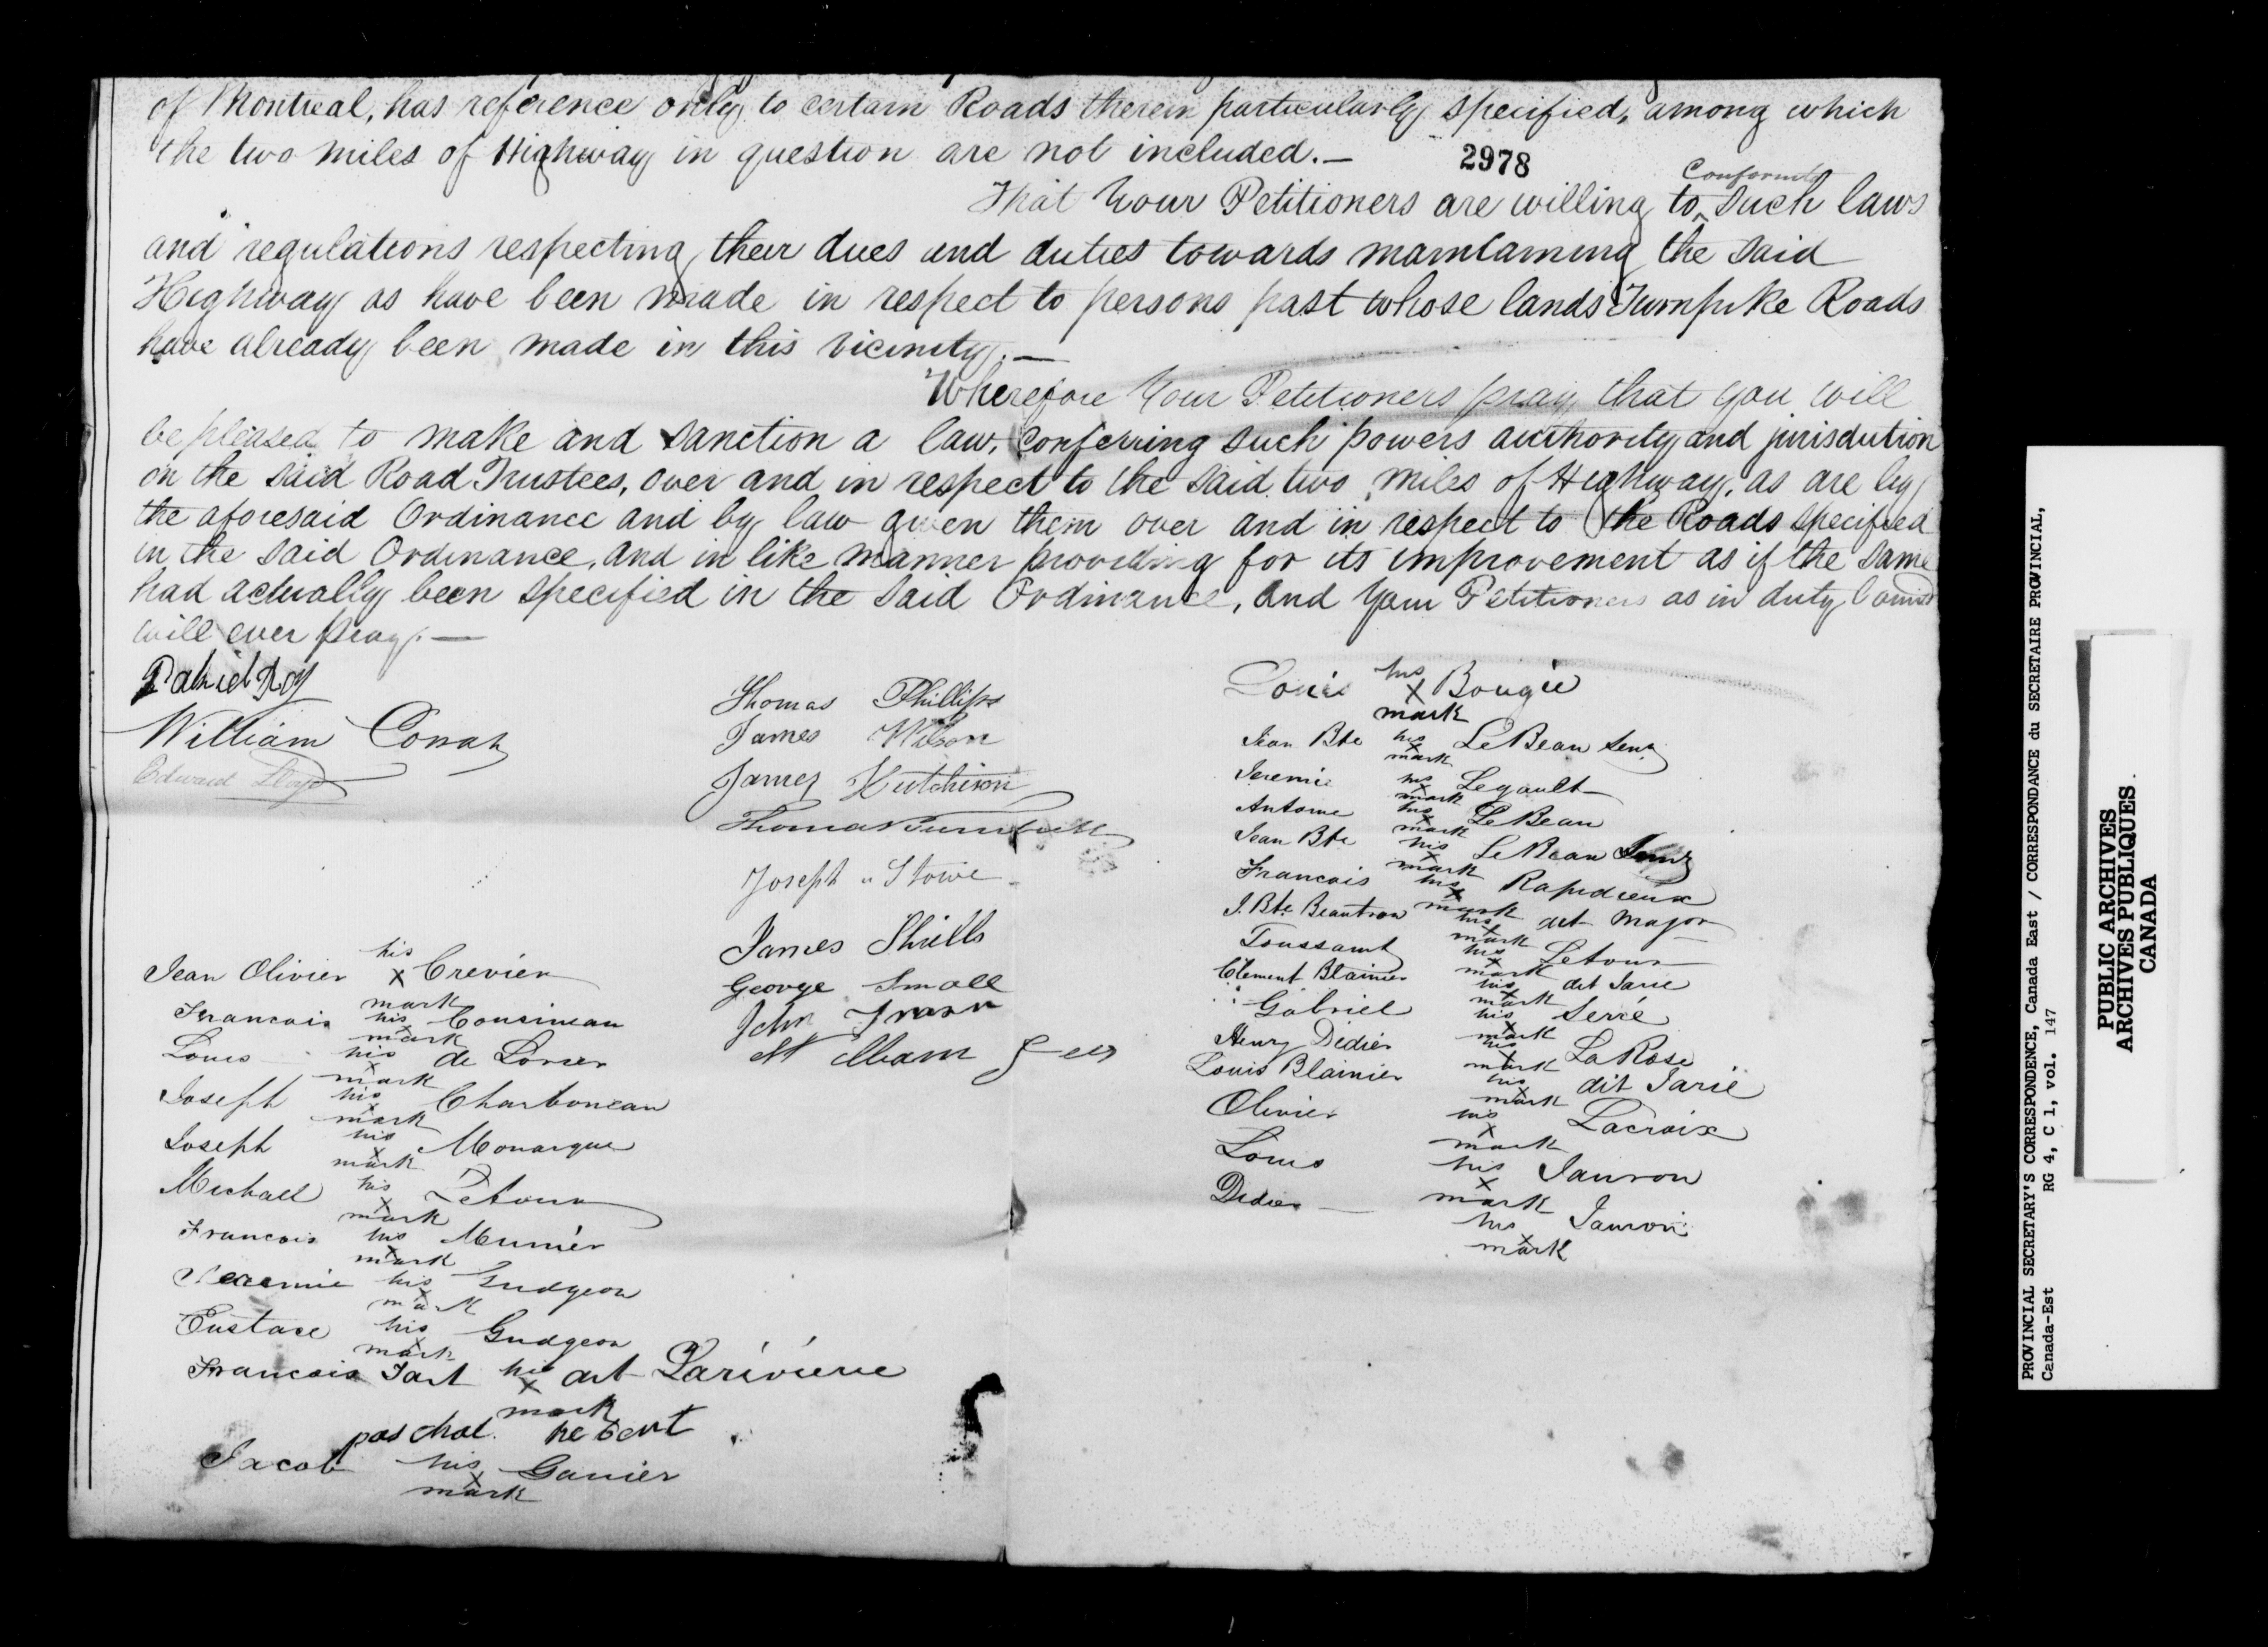 of Montreal, has reference only to certain Roads therein particularly specified, among which
the two miles of Highway in question are not included.—
2978
Conform to
That Your Petitioners are willing to such laws
and regulations respecting their dues and duties towards maintaining the said
Highway as have been made in respect to persons past whose lands Turnpike Roads
have already been made in this vicinity.—
Wherefore Your Petitioners pray that you will
be pleased to make and sanction a law, conferring such powers authority and jurisdiction
on the said Road Trustees, over and in respect to the said two miles of Highway, as are by
the aforesaid Ordinance and by law given them over and in respect to the Roads specified
in the said Ordinance, and in like manner providing for its improvement as if the same
had actually been specified in the said Ordinance, and Your Petitioners as in duty bound
will ever pray.—
William
Edward Lloyd
Jean Olivier his x mark Crevier
Francois his x mark Cousineau
Louis his x mark de Lorier
Joseph his x mark Charboneau
Joseph his x mark Monarque
Michael his x mark Letour
Francois his x mark Munier
Jeremie his x mark Gudgeon
Eustace his x mark Gudgeon
Francois Tart his x mark dit Lariviere
paschal hebert
Jacob his x mark Ganier
Thomas Phillips
James Wilson
James Hutchison
Thomas Turnbull
Joseph Stowe
James Shiells
George Small
John
Louis his x mark Bougie
Jean Bte his x mark LeBeau Senr
Jeremie his x mark Legault
Antoine his x mark LeBeau
Jean Bte his x mark LeBeau Junr
Francois his x mark Rapidieux
J. Bte Beautron his x mark dit Major
Toussaint his x mark Letour
Clement Blainier his x mark dit Jarie
Gabriel his x mark Serré
Henry Didier his x mark LaRose
Louis Blainier his x mark dit Jarie
Olivier his x mark Lacroix
Louis his x mark Jauron
Didier his x mark Jauron
PROVINCIAL SECRETARY'S CORRESPONDENCE, Canada East / CORRESPONDANCE du SECRETAIRE PROVINCIAL,
Canada-Est RG 4, C 1, vol. 147
PUBLIC ARCHIVES
ARCHIVES PUBLIQUES
CANADA